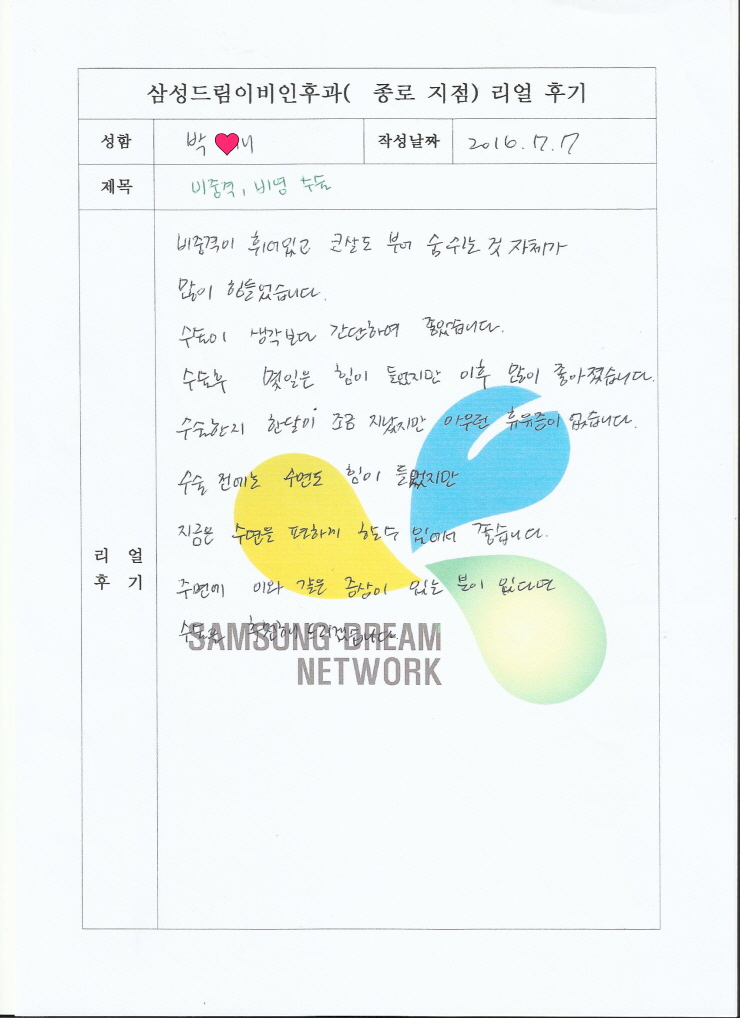 삼성드림이비인후과( 종로 지점) 리얼 후기
성함 박 작성날짜 2016.7.7
제목 비중격, 비염 수술
리 얼 후 기
비중격이 휘어있고 코살도 부어 숨쉬는 것 자체가
많이 힘들었습니다.
수술이 생각보다 간단하여 좋았습니다.
수술후 몇일은 힘이 들었지만 이후 많이 좋아졌습니다.
수술한지 한달이 조금 지났지만 아무런 휴유증이 없습니다.
수술 전에는 수면도 힘이 들었지만
지금은 수면을 편하게 할수 있어서 좋습니다.
주변에 이와 같은 증상이 있는 분이 있다면
수술을 추천해 드리겠습니다.
SAMSUNG DREAM
NETWORK